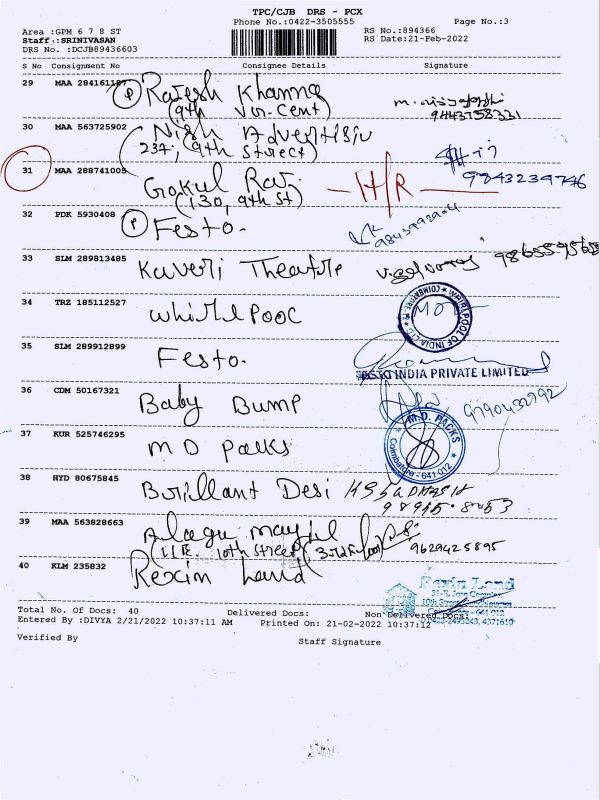 TPC/CJB DRS - PCX
Phone No.:0422-3505555 Page No.:3
Area :GPM 6 7 8 ST RS No.:894366
Staff :SRINIVASAN RS Date:21-Feb-2022
DRS No. :DCJB89436603
S No Consignment No Consignee Details Signature
29 MAA 284161187 P Rajesh Khanna
(9th Vor-Cent)
9443758331
30 MAA 563725902 Nish Advertisiu
(237, 9th Street)
31 MAA 288741005 Gokul Raj H/R 9843239746
(130, 9th St)
32 PDK 5930408 P Festo.
33 SLM 289813485 Kaveri Theatre
34 TRZ 185112527 Whirlpool
WHIRLPOOL OF INDIA LTD COIMBATORE
35 SLM 289912899 Festo.
INDIA PRIVATE LIMITED
36 CDM 50167321 Baby Bump 9790432792
37 KUR 525746295 M D Packs
M.D. PACKS
Coimbatore - 641 012
38 HYD 80675845 Brillant Desi
39 MAA 563828663 Alagu
10th Street 3rd floor 9629425895
40 KLM 235832 Rexin Land
Rexin Land
Total No. Of Docs: 40 Delivered Docs: Non Delivered Docs:
Entered By :DIVYA 2/21/2022 10:37:11 AM Printed On: 21-02-2022 10:37:12
Verified By Staff Signature